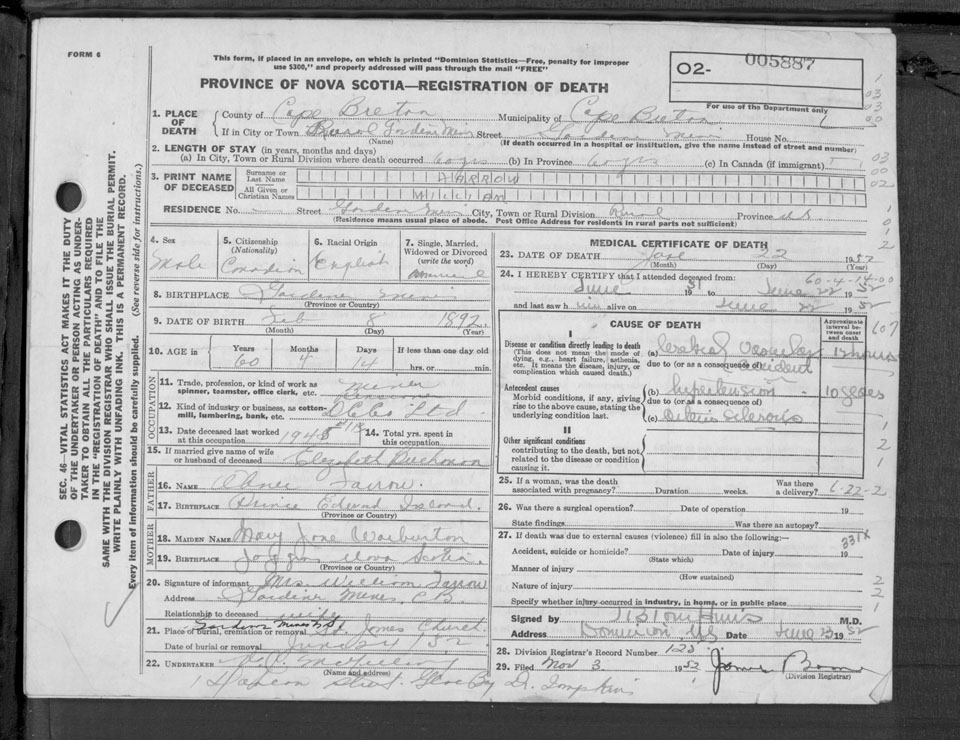 FORM 6
This form, if placed in an envelope, on which is printed "Dominion Statistics—Free, penalty for improper
use $300," and properly addressed will pass through the mail "FREE"
O2- 005887
PROVINCE OF NOVA SCOTIA—REGISTRATION OF DEATH
For use of the Department only
1. PLACE OF DEATH
County of Cape Breton Municipality of Cape Breton
If in City or Town Rural Gardiner Mines Street Gardiner Mines House No.
(Name) (If death occurred in a hospital or institution, give the name instead of street and number)
2. LENGTH OF STAY (in years, months and days)
(a) In City, Town or Rural Division where death occurred 60 yrs (b) In Province 60 yrs (c) In Canada (if immigrant)
3. PRINT NAME OF DECEASED
Surname or Last Name
All Given or Christian Names
RESIDENCE No. Street Gardiner Mines City, Town or Rural Division Rural Province N.S.
(Residence means usual place of abode. Post Office Address for residents in rural parts not sufficient)
4. Sex
Male
5. Citizenship (Nationality)
Canadian
6. Racial Origin
English
7. Single, Married, Widowed or Divorced (write the word)
8. BIRTHPLACE Gardiner Mines
(Province or Country)
9. DATE OF BIRTH Feb 8 1892
(Month) (Day) (Year)
10. AGE in Years Months Days If less than one day old
60 4 14 hrs. or min.
OCCUPATION
11. Trade, profession, or kind of work as spinner, teamster, office clerk, etc. Miner
12. Kind of industry or business, as cotton-mill, lumbering, bank, etc.
13. Date deceased last worked at this occupation 14. Total yrs. spent in this occupation
15. If married give name of wife or husband of deceased Elizabeth Buchanan
FATHER
16. NAME
17. BIRTHPLACE Prince Edward Island
(Province or Country)
MOTHER
18. MAIDEN NAME Mary Jane Warburton
19. BIRTHPLACE Joggins, Nova Scotia
(Province or Country)
20. Signature of informant Mrs. William Farrow
Address Gardiner Mines, C.B.
Relationship to deceased wife
21. Place of burial, cremation or removal Gardiner Mines N.S. St. James Church
Date of burial or removal
22. UNDERTAKER
(Name and address)
MEDICAL CERTIFICATE OF DEATH
23. DATE OF DEATH June 22 1952
(Month) (Day) (Year)
60-4-14-00
24. I HEREBY CERTIFY that I attended deceased from:
June 19 51 to June 22 19 52
and last saw him alive on June 22 19 52
CAUSE OF DEATH
Approximate interval between onset and death
I
Disease or condition directly leading to death
(This does not mean the mode of dying, e.g., heart failure, asthenia, etc. It means the disease, injury, or complication which caused death.)
(a) Cerebral Vascular Accident 12 hours
due to (or as a consequence of)
Antecedent causes
Morbid conditions, if any, giving rise to the above cause, stating the underlying condition last.
(b) hypertension 10 years
due to (or as a consequence of)
(c)
II
Other significant conditions
contributing to the death, but not related to the disease or condition causing it.
25. If a woman, was the death associated with pregnancy? Duration weeks. Was there a delivery?
6-22-2
26. Was there a surgical operation? Date of operation 19
State findings Was there an autopsy?
27. If death was due to external causes (violence) fill in also the following:
331X
Accident, suicide or homicide? Date of injury 19
(State which)
Manner of injury
(How sustained)
Nature of injury
Specify whether injury occurred in industry, in home, or in public place
Signed by M.D.
Address Dominion, NS Date June 23 1952
28. Division Registrar's Record Number 123
29. Filed Nov 3 1952
(Division Registrar)
SEC. 46—VITAL STATISTICS ACT MAKES IT THE DUTY
OF THE UNDERTAKER OR PERSON ACTING AS UNDER-
TAKER TO OBTAIN ALL THE PARTICULARS REQUIRED
IN THE "REGISTRATION OF DEATH" AND TO FILE THE
SAME WITH THE DIVISION REGISTRAR WHO SHALL ISSUE THE BURIAL PERMIT.
WRITE PLAINLY WITH UNFADING INK. THIS IS A PERMANENT RECORD.
Every item of information should be carefully supplied. (See reverse side for instructions.)